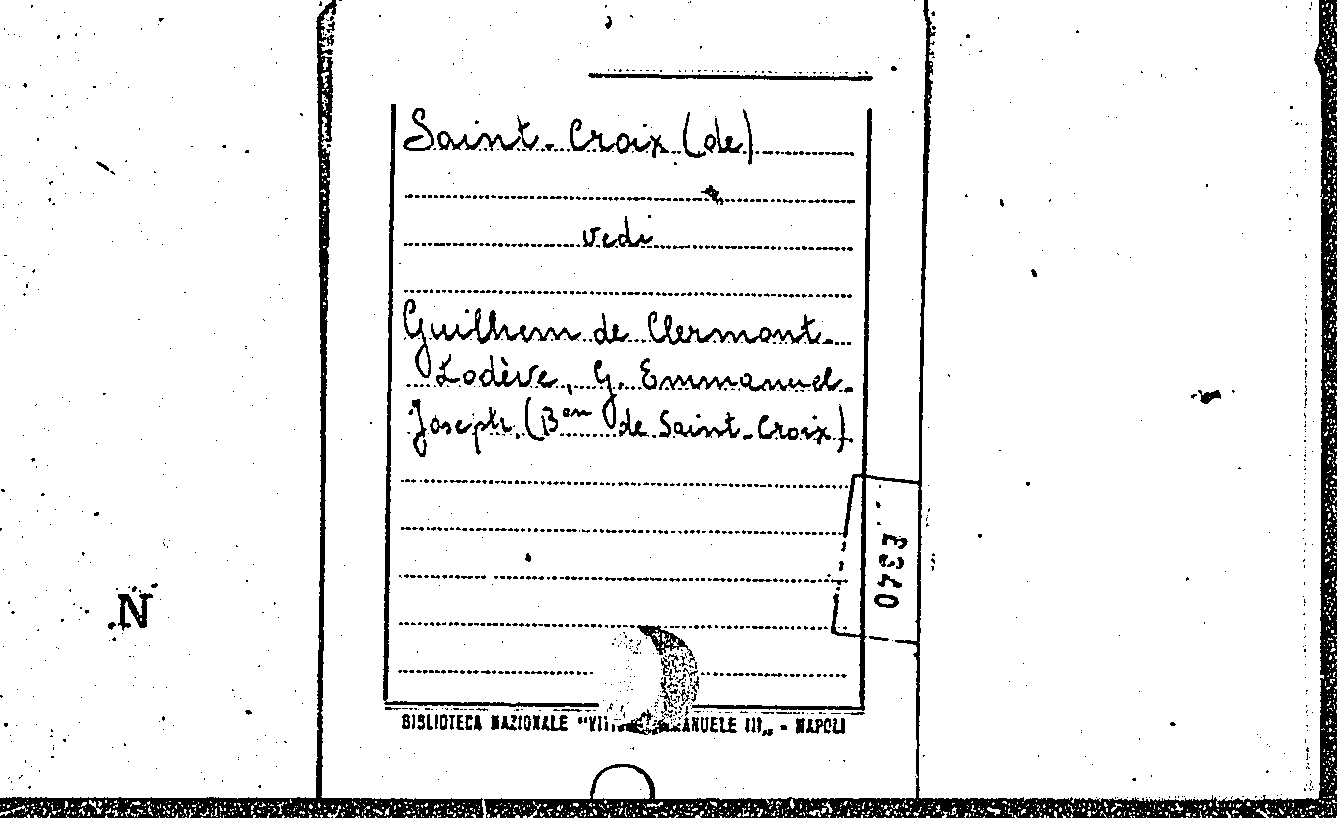 Saint-Croix (de)
vedi
Guilhem de Clermont-
Lodève, G. Emmanuel-
Joseph (Bon de Saint-Croix)
E340
N
BIBLIOTECA NAZIONALE "VITTORIO EMANUELE III„ - NAPOLI